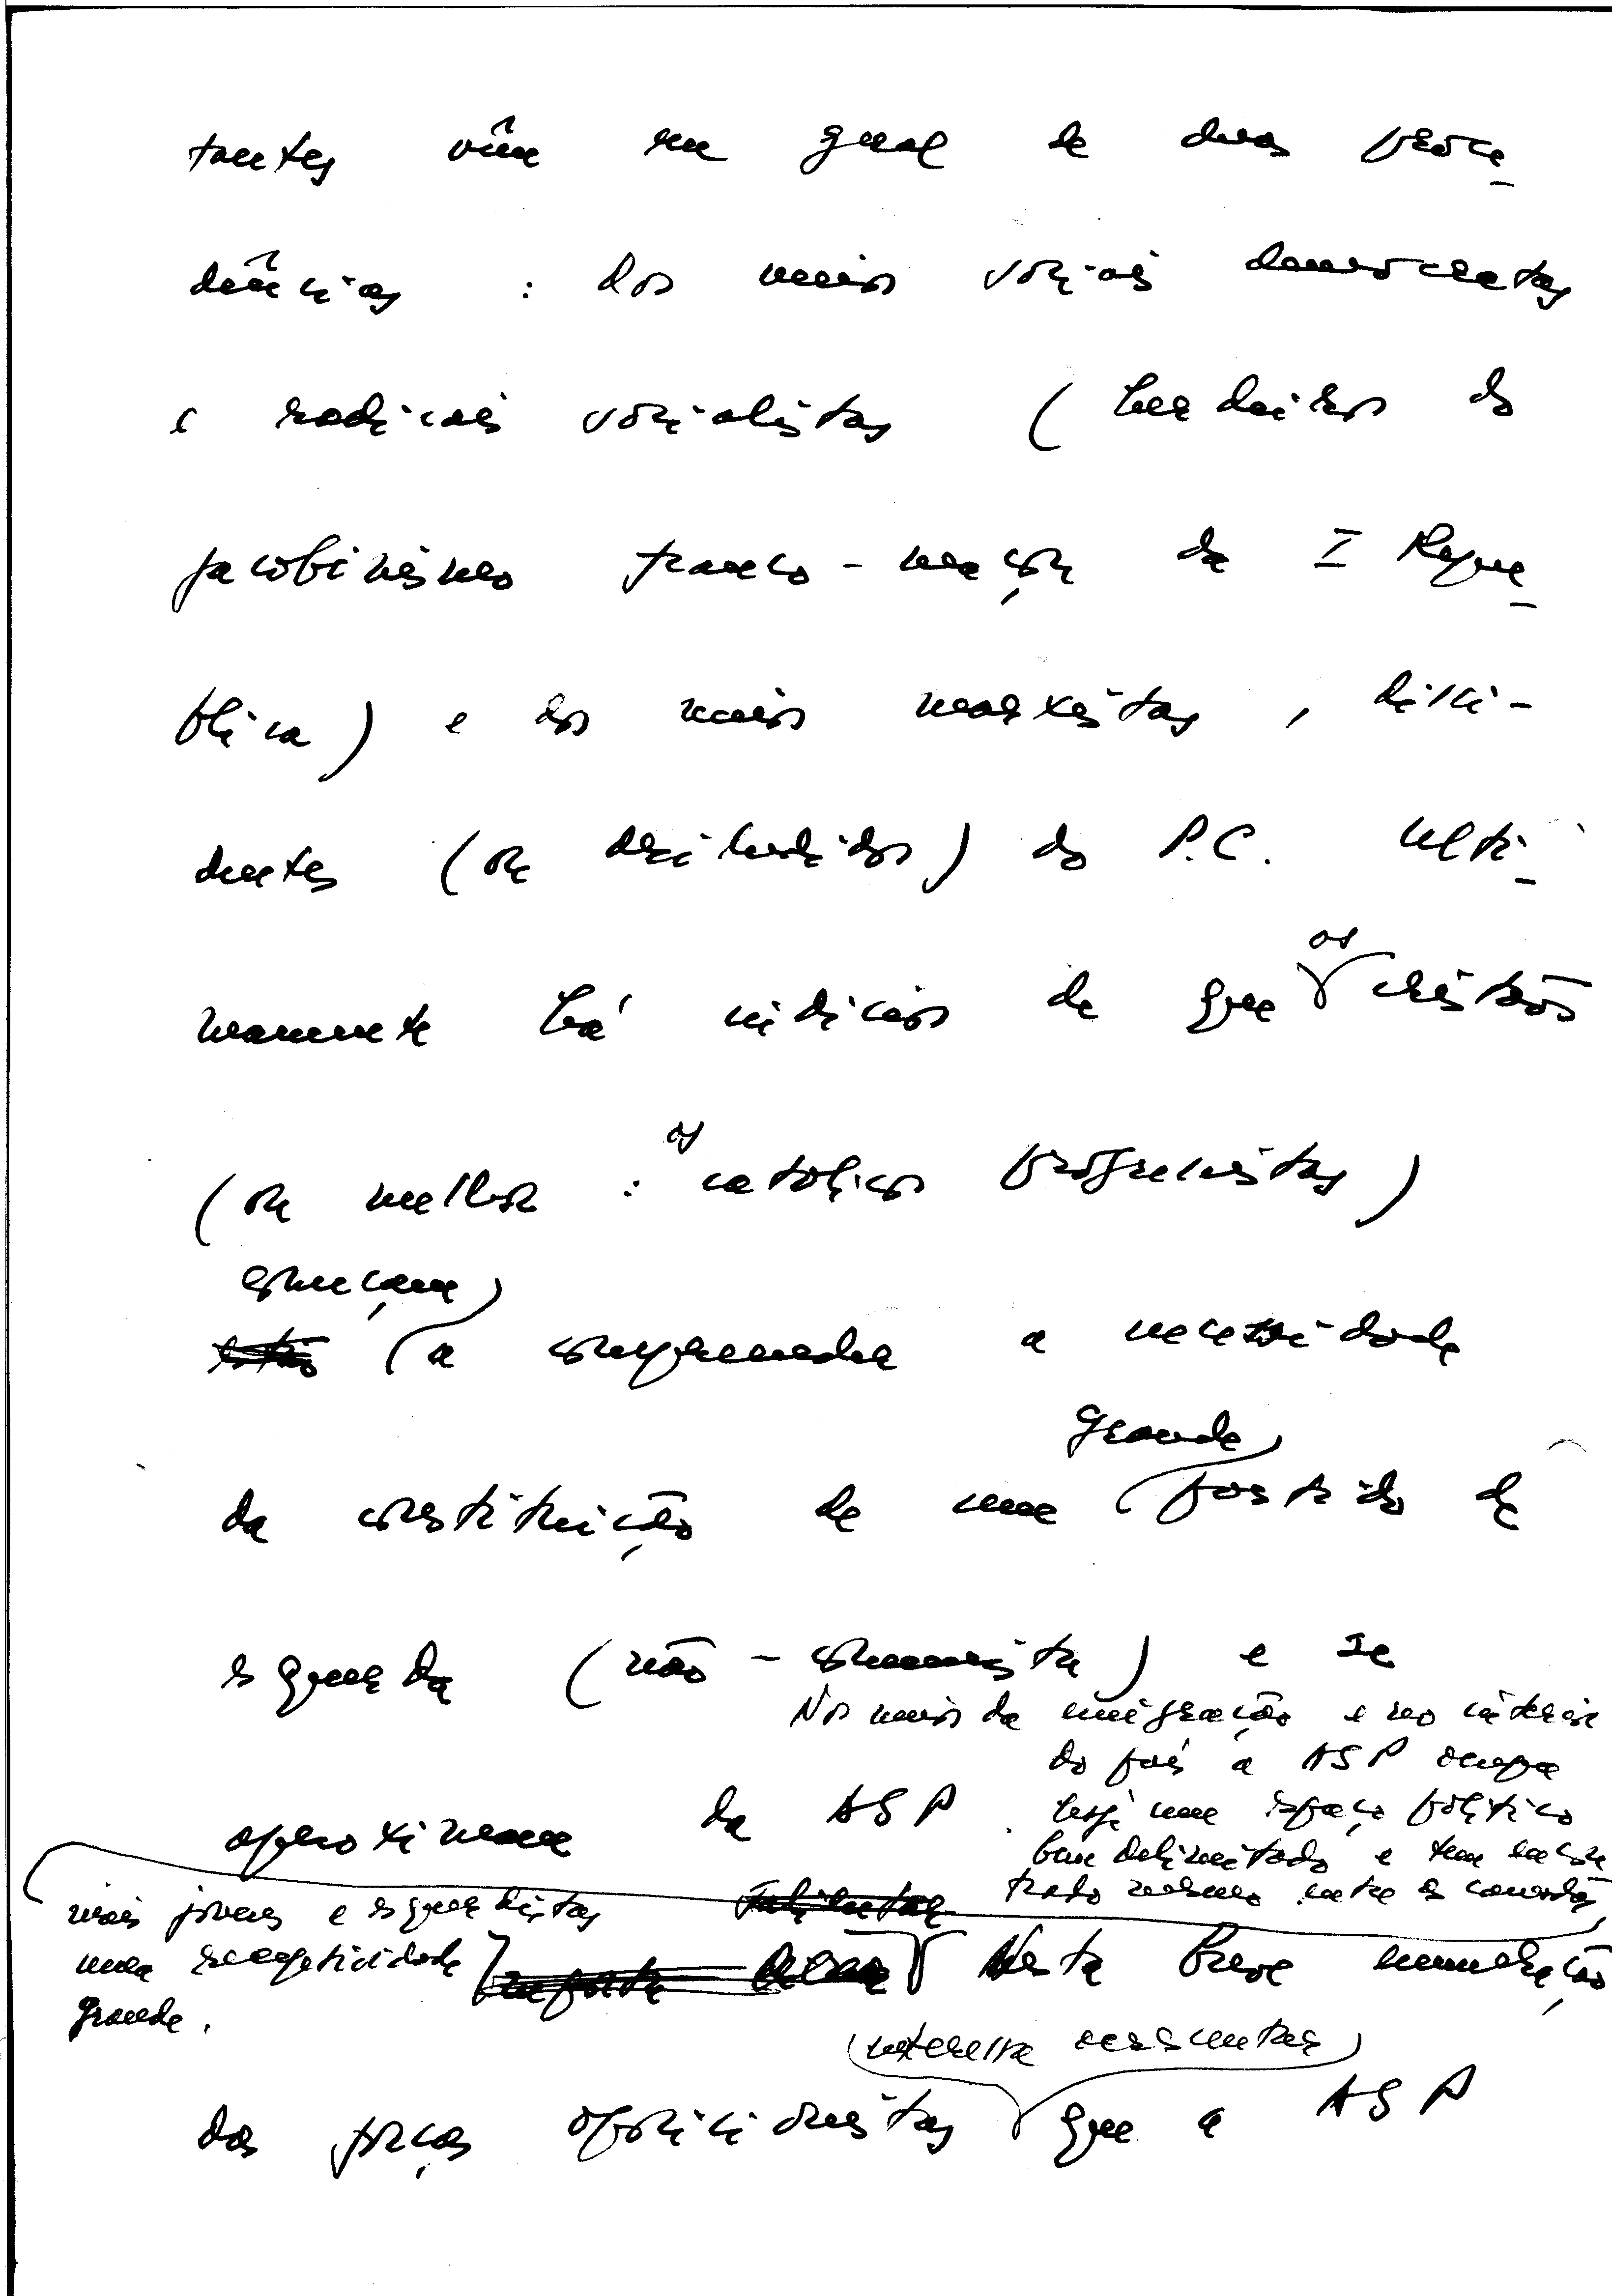 tantes vêm em geral de duas proce-
dências : dos meios sociais democratas
e radicais socialistas ( herdeiros do
jacobinismo franco-maçon da I Repu-
blica ) e dos meios marxistas , dissi-
dentes (ou desiludidos) do P.C. Ulti-
mamente há indícios de que os cristãos
(ou melhor : os católicos progressistas)
começam
a compreender a necessidade
grande
da constituição de um partido de
esquerda (não-comunista) e se
Nos meios da emigração e no interior
do país a ASP ocupa
aproximam da ASP.
hoje um espaço político
bem delimitado e tem encon
trado mesmo entre as camadas
mais jovens e esquerdistas
uma receptividade
grande.
Nesta breve enumeração
interessa acrescentar
das forças oposicionistas que a ASP